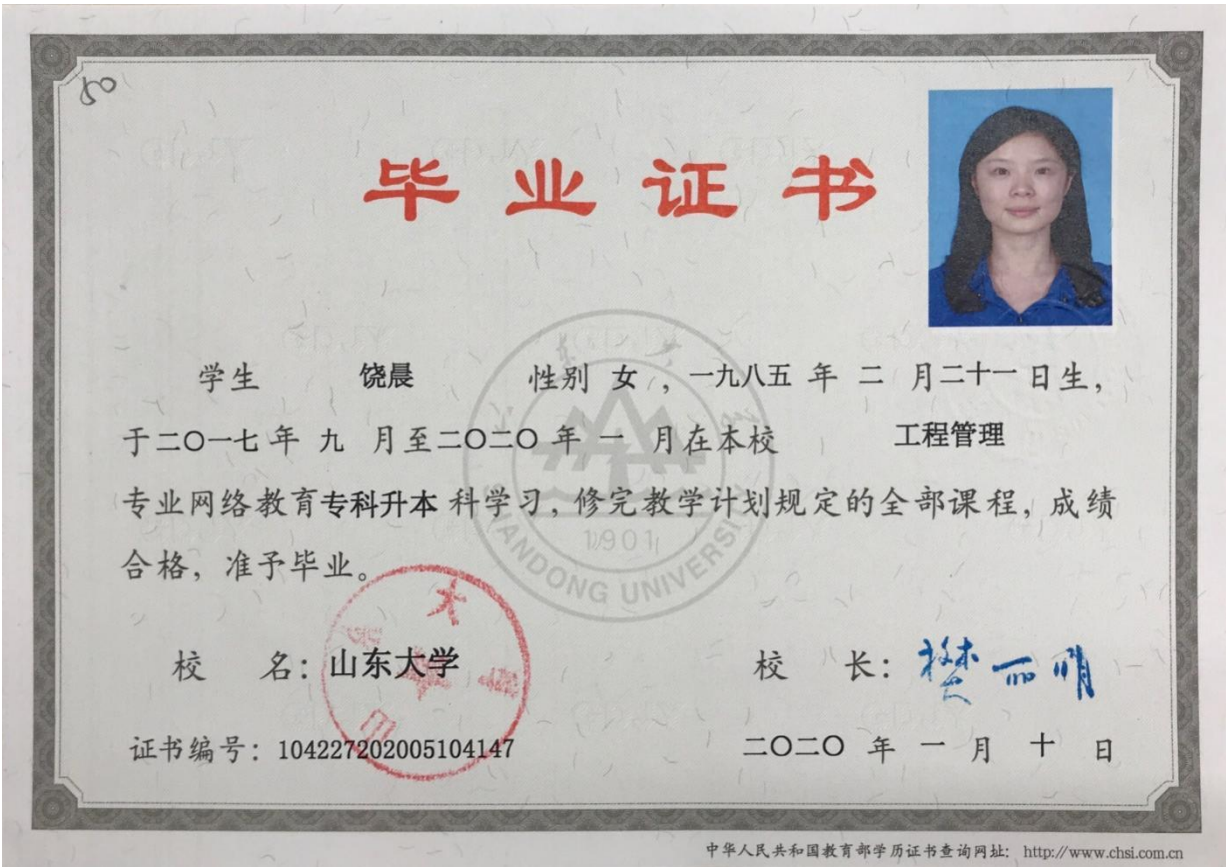 50
毕业证书
学生 饶晨 性别 女 ，一九八五 年 二 月二十一日生，
于二〇一七年 九 月至二〇二〇 年 一 月在本校 工程管理
专业网络教育专科升本 科学习，修完教学计划规定的全部课程，成绩
合格，准予毕业。
1901
SHANDONG UNIVERSITY
校 名：山东大学
校 长：樊丽明
证书编号：104227202005104147
二〇二〇 年 一 月 十 日
中华人民共和国教育部学历证书查询网址：http://www.chsi.com.cn